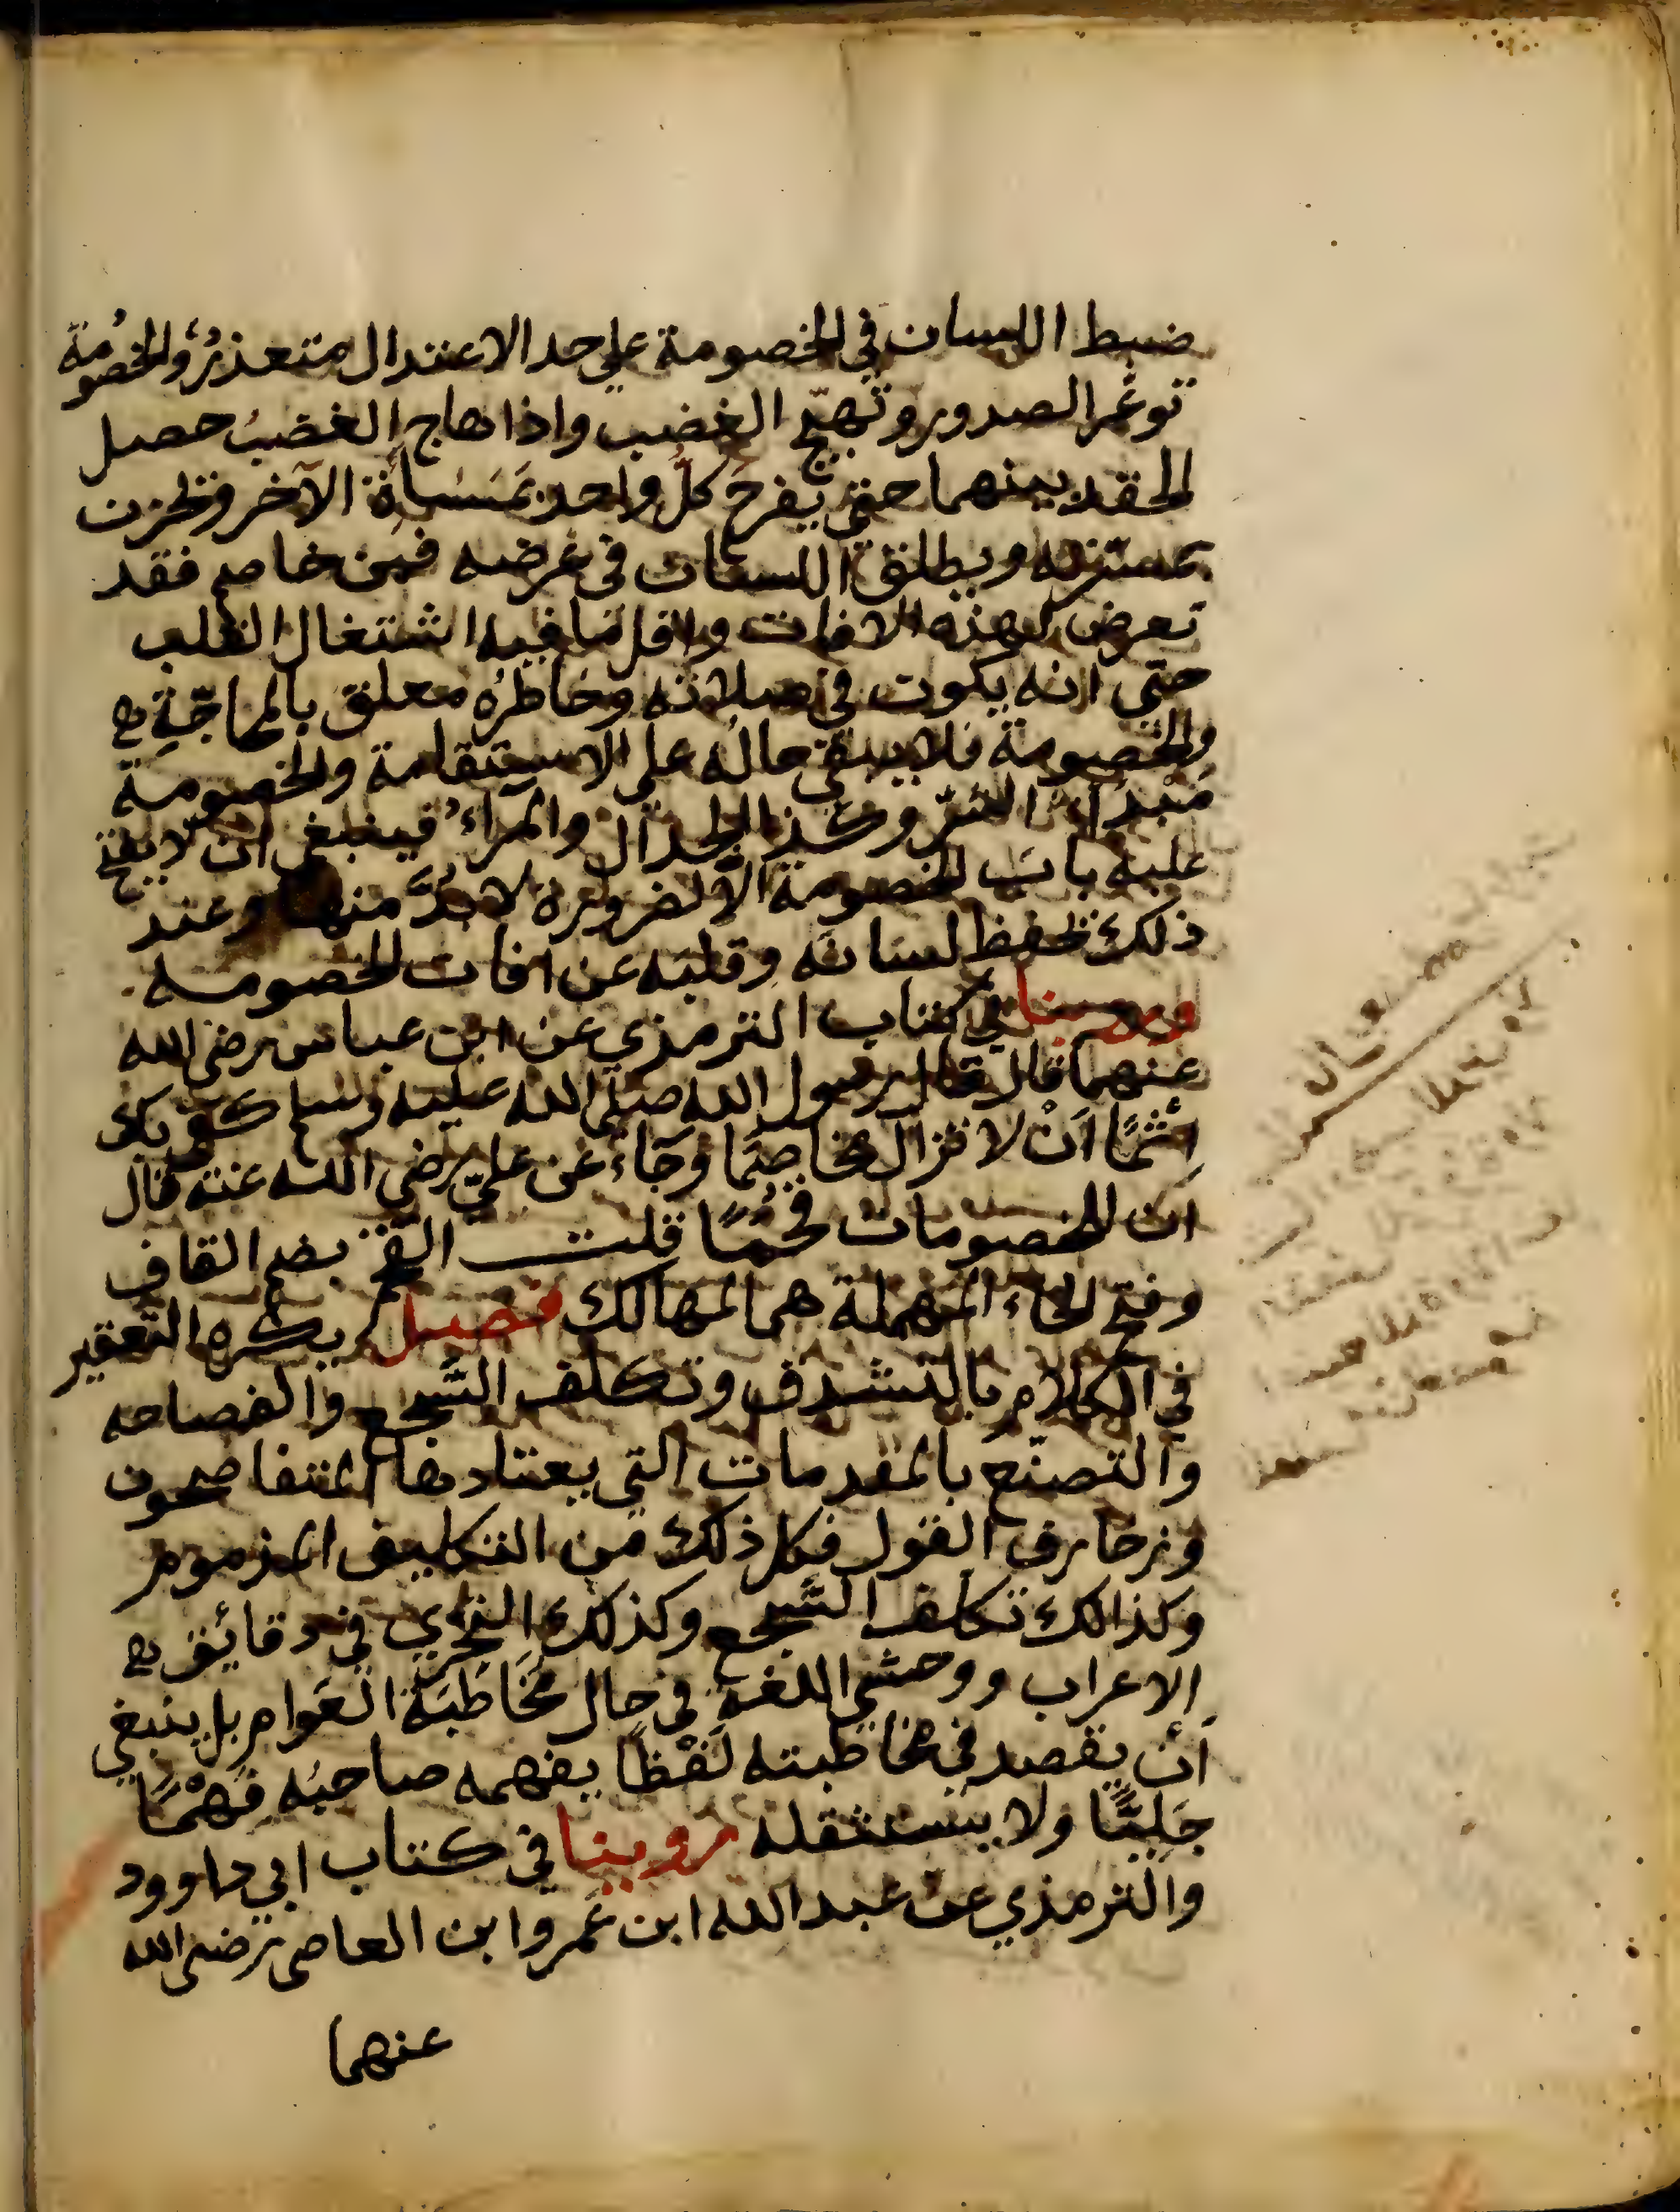 ضبط اللسان في الخصومة علي حد الاعتدال متعذرٌ والخصُومة
توغّر الصدور وتُهيّج الغضب واذا هاج الغضبُ حصل
الحقد بينهما حتي يفرحَ كلُّ واحد بمَسَاءة الآخر ويحزن
بمسّرته ويطلق اللسان في عرضه فمن خاصم فقد
تعرض لهذه الافات واقل مَا فيه اشتغال القلب
حتّى انه يكون في صلاته وخاطرُه معلق بالمحاجّةِ
والخصومة فلا يبقي حالُه على الاستقامة والخصومة
مَبْدأ الشرّ وكذا الجدال والمرآءُ فينبغي ان لا يفتح
عليه بابَ الخصومة الَّا لضرورة لا بُدَّ منها وعند
ذلك يحفظ لسَانَه وقلبَه عن افات الخصومه
وروينا في كتاب الترمذي عن ابن عباس رضى الله
عنهما قال قال رسول الله صلى الله عليه وسلم كفى بك
إثمًا اَنْ لا تزال مخاصمًا وجَاءَ عن عليّ رضي الله عنه قال
ان للخصومات قُحُمًا قلت القُحَم بضم القاف
وفتح الحاء المهملة هي المهالك فصل يكره التّعقير
في الكلام بالتشدق وتكلف السَّجع والفصاحه
والتصنّع بالمقدمات التي يعتادها المتفاصحون
وزخارف القول فكل ذلك من التكليف المذموم
وكذالك تكلف السَّجع وكذلك التحرّي في دقائق
الاعراب ووحشي اللغة في حال مُخَاطَبَة العَوام بل ينبغي
أن يقصد في مخاطبته لَفْظًا يفهمه صاحبُه فَهْمًا
جَلِيًّا ولا يستثقله روينا في كتاب ابي داوود
والترمذي عن عبد الله ابن عَمرو ابن العاصى رضى الله
عنهما